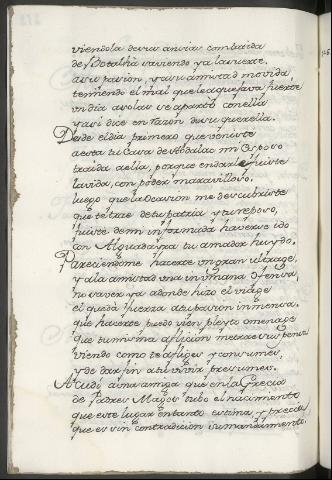 viendola de sus ansias combatida
de Botalhá saviendo ya la suerte.
a su pasion, y a su amistad movida,
temiendo el mal que le aquejava fuerte
un dia a solas se apartó con ella
y asi dice en razon de su querella.
Desde el dia primero que veniste
a esta tu Casa de Abdalas mi Esposo
traida a ella, porque en darle fuiste
la vida, con poder maravilloso.
luego que la ocasion me descubriste
que te trae de tu patria, y tu reposo,
fuiste de mi informada haverse ido
con Alguadayra tu amador huydo.
Pareciendome hacerte un gran ultrage,
y a la amistad una inhumana ofensa,
no saver ya adonde hizo el viage
el que dá fuerza a tu pasion inmensa.
que hacerte puedo bien pleyto omenage
que tu misma aflicion me trae suspensa
viendo como te afliges y consumes,
y de dar fin a tu vivir presumes.
Acudi a una amiga que en la Grecia
de Padres Magos tubo el nacimiento
que este lugar en tanto estima, y precia
que es sin contradicion su mandamiento.